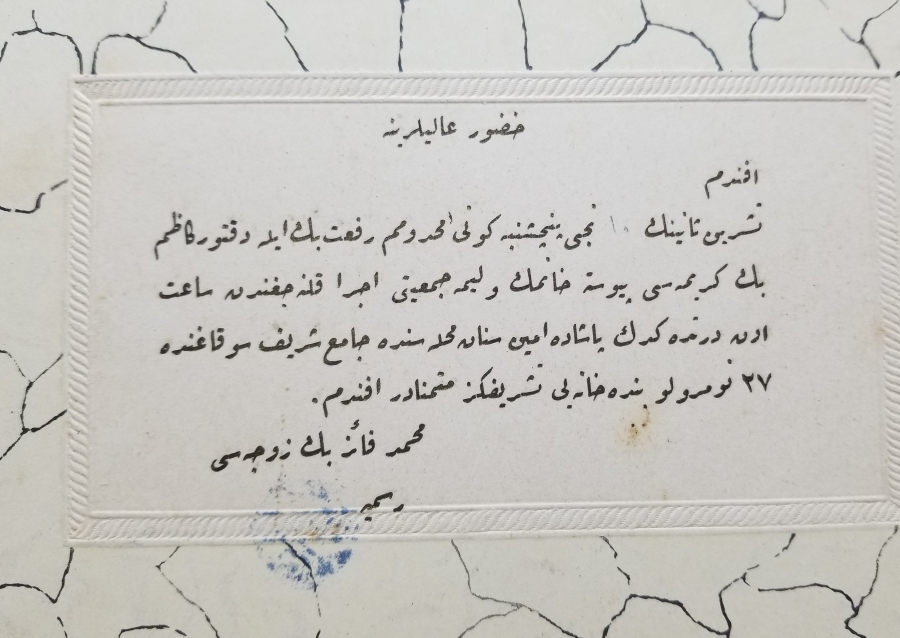 حضور عاليلرينه
افندم
تشرين ثانينك ١٠ نجى پنچشنبه كونى مخدومم رفعت بك ايله دوقتور كاظم
بك كريمه سى پيوسته خانمك وليمه جمعيتى اجرا قلنه جغندن ساعت
اون درتده كدك پاشاده امين سنان محله سنده جامع شريف سوقاغنده
٢٧ نومرولو بنده خانه يى تشريفكز متمنادر افندم.
محمد فائز بك زوجه سى
رسميه